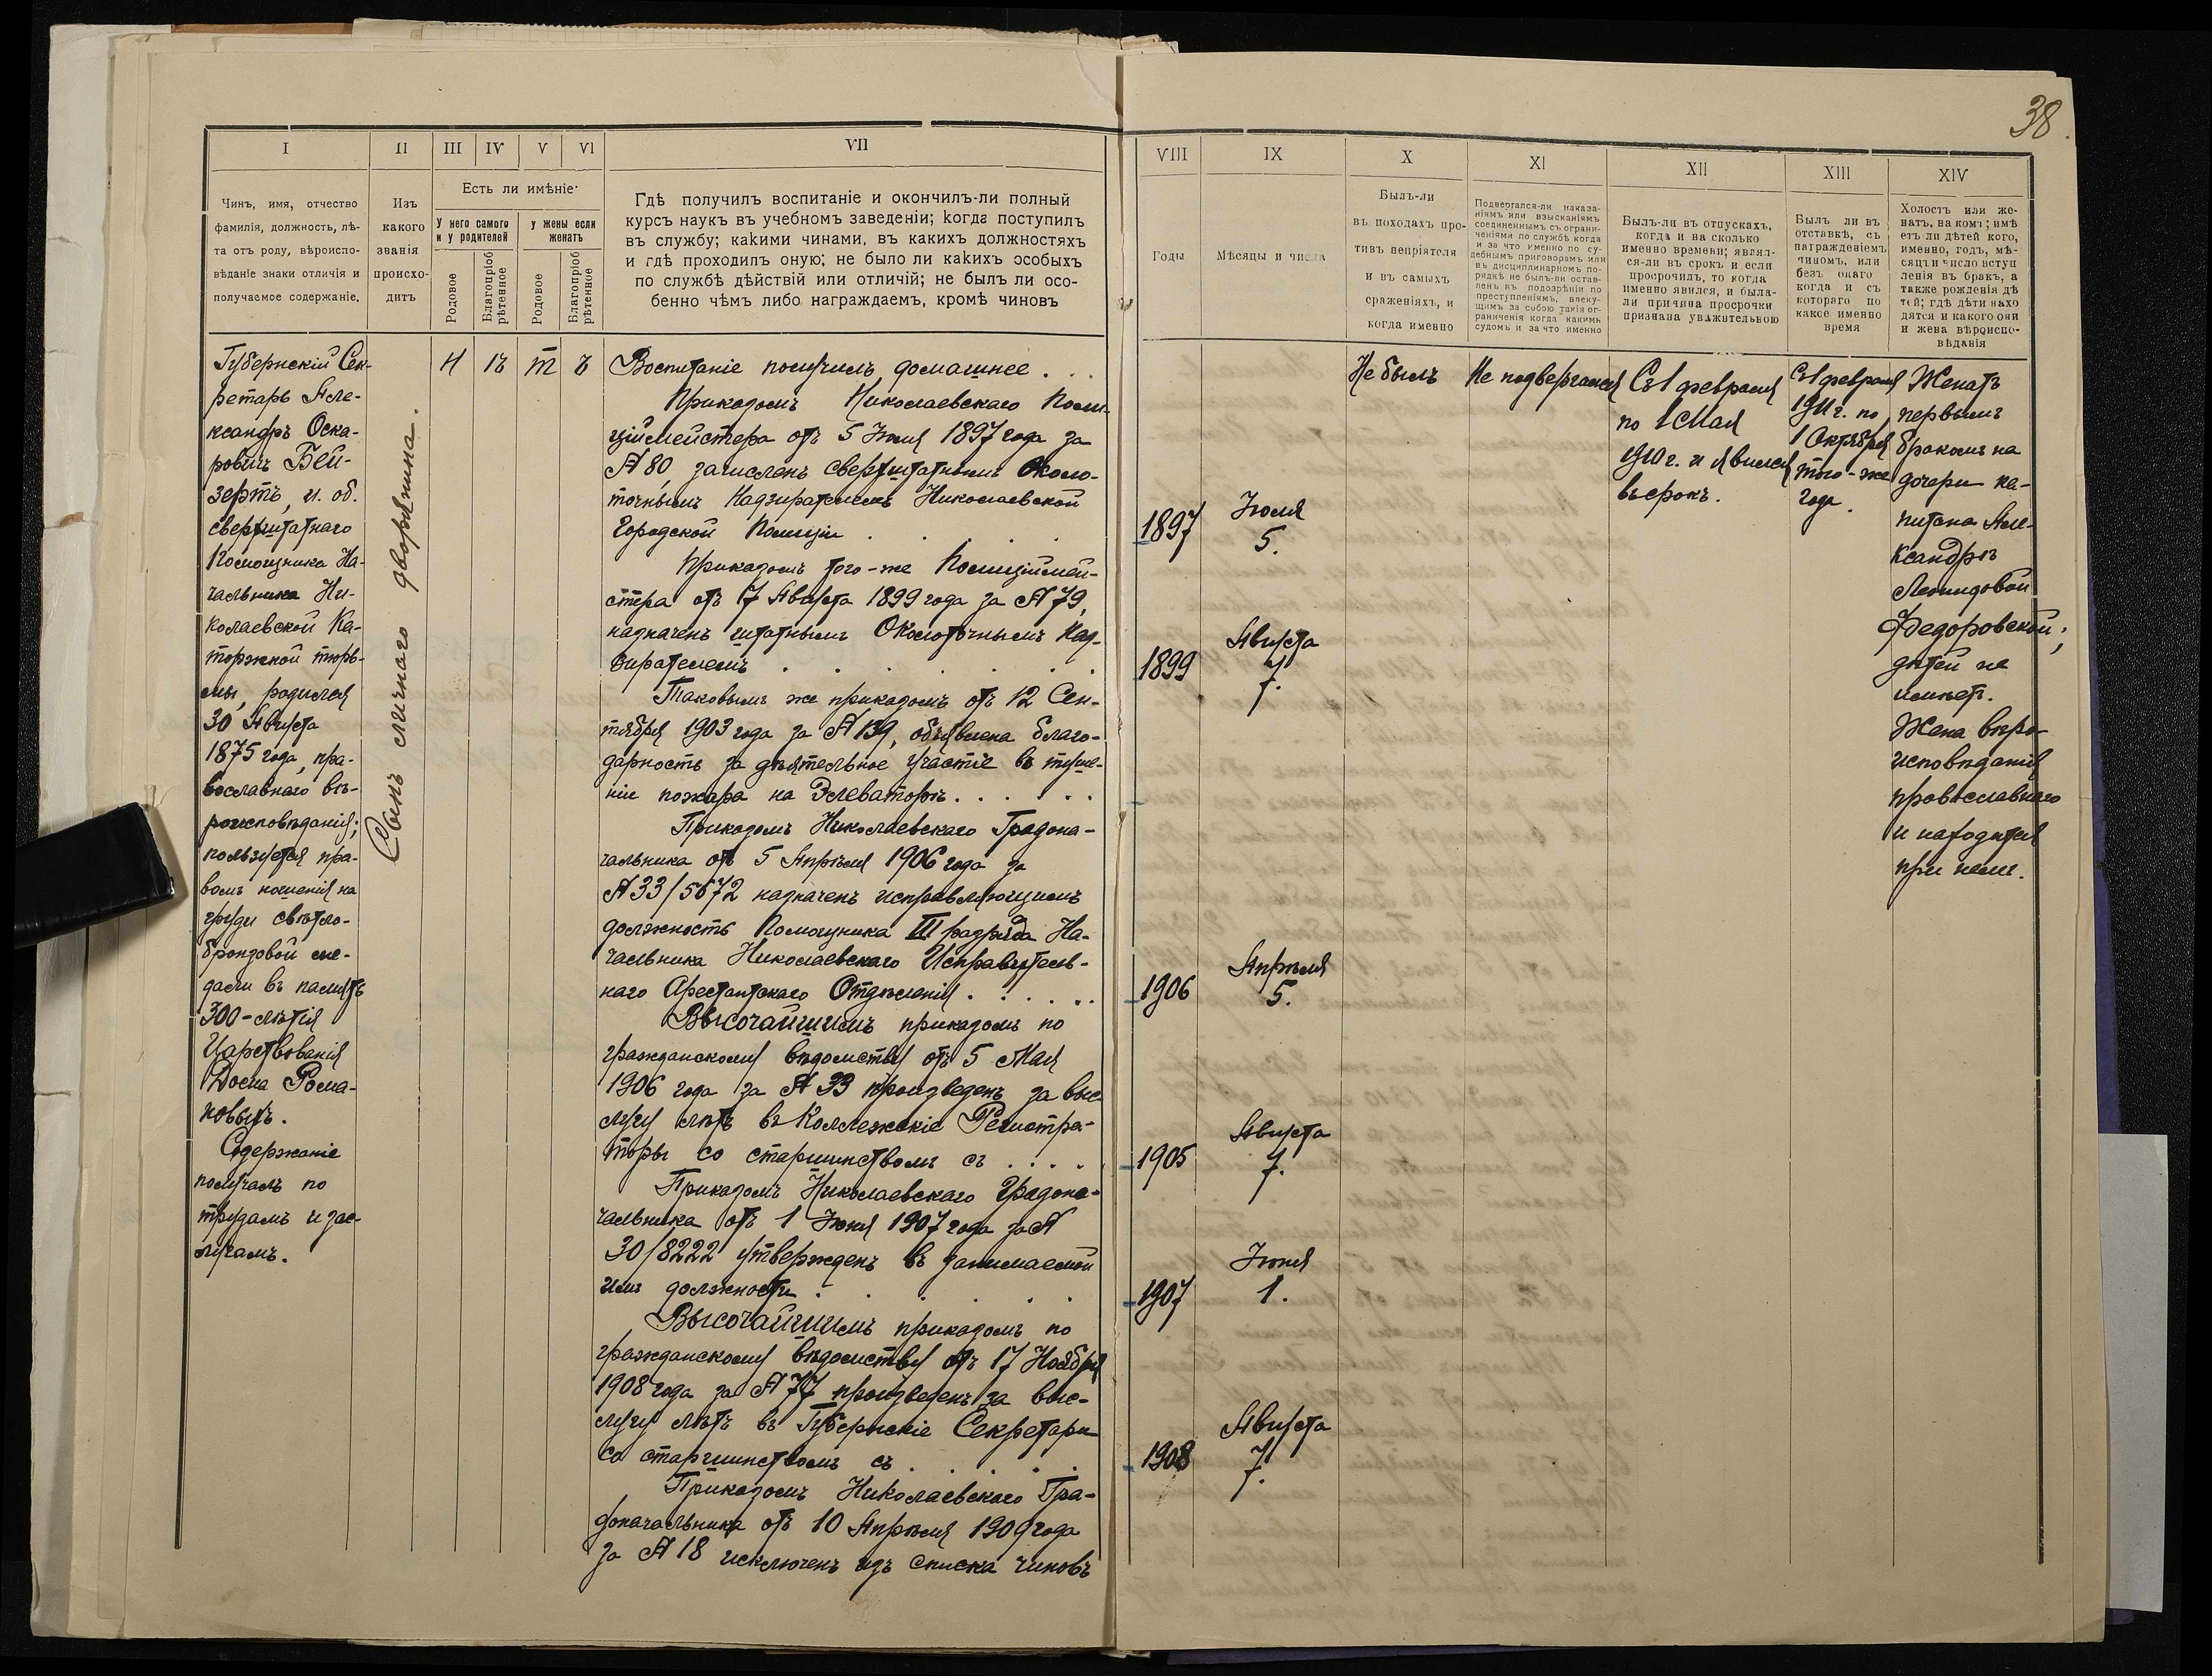 38.
I
II
III
IV
V
VI
VII
Чинъ, имя, отчество
фамилія, должность, лѣ-
та отъ роду, вѣроиспо-
вѣданіе знаки отличія и
получаемое содержаніе.
Изъ
какого
званія
происхо-
дитъ
Есть ли имѣніе
У него самого
и у родителей
у жены если
женатъ
Родовое
Благопріоб
рѣтенное
Родовое
Благопріоб
рѣтенное
Гдѣ получилъ воспитаніе и окончилъ-ли полный
курсъ наукъ въ учебномъ заведеніи; когда поступилъ
въ службу; какими чинами, въ какихъ должностяхъ
и гдѣ проходилъ оную; не было ли какихъ особыхъ
по службѣ дѣйствій или отличій; не былъ ли осо-
бенно чѣмъ либо награждаемъ, кромѣ чиновъ
Губернскій Сек-
ретарь Але-
ксандръ Оска-
ровичъ Бей-
зертъ, и. об.
сверхштатнаго
Помощника На-
чальника Ни-
колаевской Ка-
торжной тюрь-
мы, родился
30 Августа
1875 года, пра-
вославнаго вѣ-
роисповѣданія;
пользуется пра-
вомъ ношенія на
груди свѣтло-
бронзовой ме-
дали въ память
300-лѣтія
Царствованія
Дома Рома-
новыхъ.
Содержаніе
получалъ по
трудамъ и зас-
лугамъ.
Сынъ личнаго дворянина.
Н ѣ т ъ
Воспитаніе получилъ домашнее . . .
Приказомъ Николаевскаго Поли-
ційместера отъ 5 Іюля 1897 года за
№ 80, зачисленъ сверхштатнымъ Около-
точнымъ Надзирателемъ Николаевской
Городской Полиціи . . . .
Приказомъ того-же Полиціймей-
стера отъ 17 Августа 1899 года за № 79,
назначенъ штатнымъ Околоточнымъ Над-
зирателемъ . . . . . .
Таковымъ же приказомъ отъ 12 Сен-
тября 1903 года за № 139, объявлена благо-
дарность за дѣятельное участіе въ туше-
ніи пожара на Элеваторѣ. . . . . .
Приказомъ Николаевскаго Градона-
чальника отъ 5 Апрѣля 1906 года за
№ 33/5672 назначенъ исправляющимъ
должность Помощника III разряда На-
чальника Николаевскаго Исправитель-
наго Арестантскаго Отдѣленія . . . . . .
Высочайшимъ приказомъ по
гражданскому вѣдомству отъ 5 Мая
1906 года за № 33 произведенъ за выс-
лугу лѣтъ въ Коллежскіе Регистра-
торы со старшинствомъ съ . . . .
Приказомъ Николаевскаго Градона-
чальника отъ 1 Іюня 1907 года за №
30/8222 утвержденъ въ занимаемой
имъ должности . . . . .
Высочайшимъ приказомъ по
гражданскому вѣдомству отъ 17 Ноября
1908 года за № 77 произведенъ за выс-
лугу лѣтъ въ Губернскіе Секретари
со старшинствомъ съ . . . .
Приказомъ Николаевскаго Гра-
доначальника отъ 10 Апрѣля 1909 года
за № 18 исключенъ изъ списка чиновъ
VIII
IX
X
XI
XII
XIII
XIV
Годы
Мѣсяцы и числа
Былъ-ли
въ походахъ про-
тивъ непріятеля
и въ самыхъ
сраженіяхъ, и
когда именно
Подвергался-ли наказа-
ніямъ или взысканіямъ
соединеннымъ съ ограни-
ченіями по службѣ когда
и за что именно по су-
дебнымъ приговорамъ или
въ дисциплинарномъ по-
рядкѣ не былъ-ли остав-
ленъ въ подозрѣніи по
преступленіямъ, влеку-
щимъ за собою такія ог-
раниченія когда какимъ
судомъ и за что именно
Былъ-ли въ отпускахъ,
когда и на сколько
именно времени; являл-
ся-ли въ срокъ и если
просрочилъ, то когда
именно явился, и была-
ли причина просрочки
признана уважительною
Былъ ли въ
отставкѣ, съ
награжденіемъ
чиномъ, или
безъ онаго
когда и съ
котораго по
какое именно
время
Холостъ или же-
натъ, на комъ; имѣ
етъ-ли дѣтей кого,
именно, годъ, мѣ-
сяцъ и число вступ
ленія въ бракъ, а
также рожденія дѣ
тей; гдѣ дѣти нахо
дятся и какого они
и жена вѣроиспо-
вѣданія
1897
Іюля
5.
1899
Августа
7.
1906
Апрѣля
5.
1905
Августа
7.
1907
Іюня
1.
1908
Августа
7.
Не былъ
Не подвергался
Съ 1 февраля
по 1 Мая
1910 г. и явился
въ срокъ.
Съ 1 февраля
1911 г. по
1 Октября
того-же
года.
Женатъ
первымъ
бракомъ на
дочери ка-
питана Але-
ксандрѣ
Леонидовой
Федоровской;
дѣтей не
имѣетъ.
Жена вѣро-
исповѣданія
православнаго
и находится
при немъ.